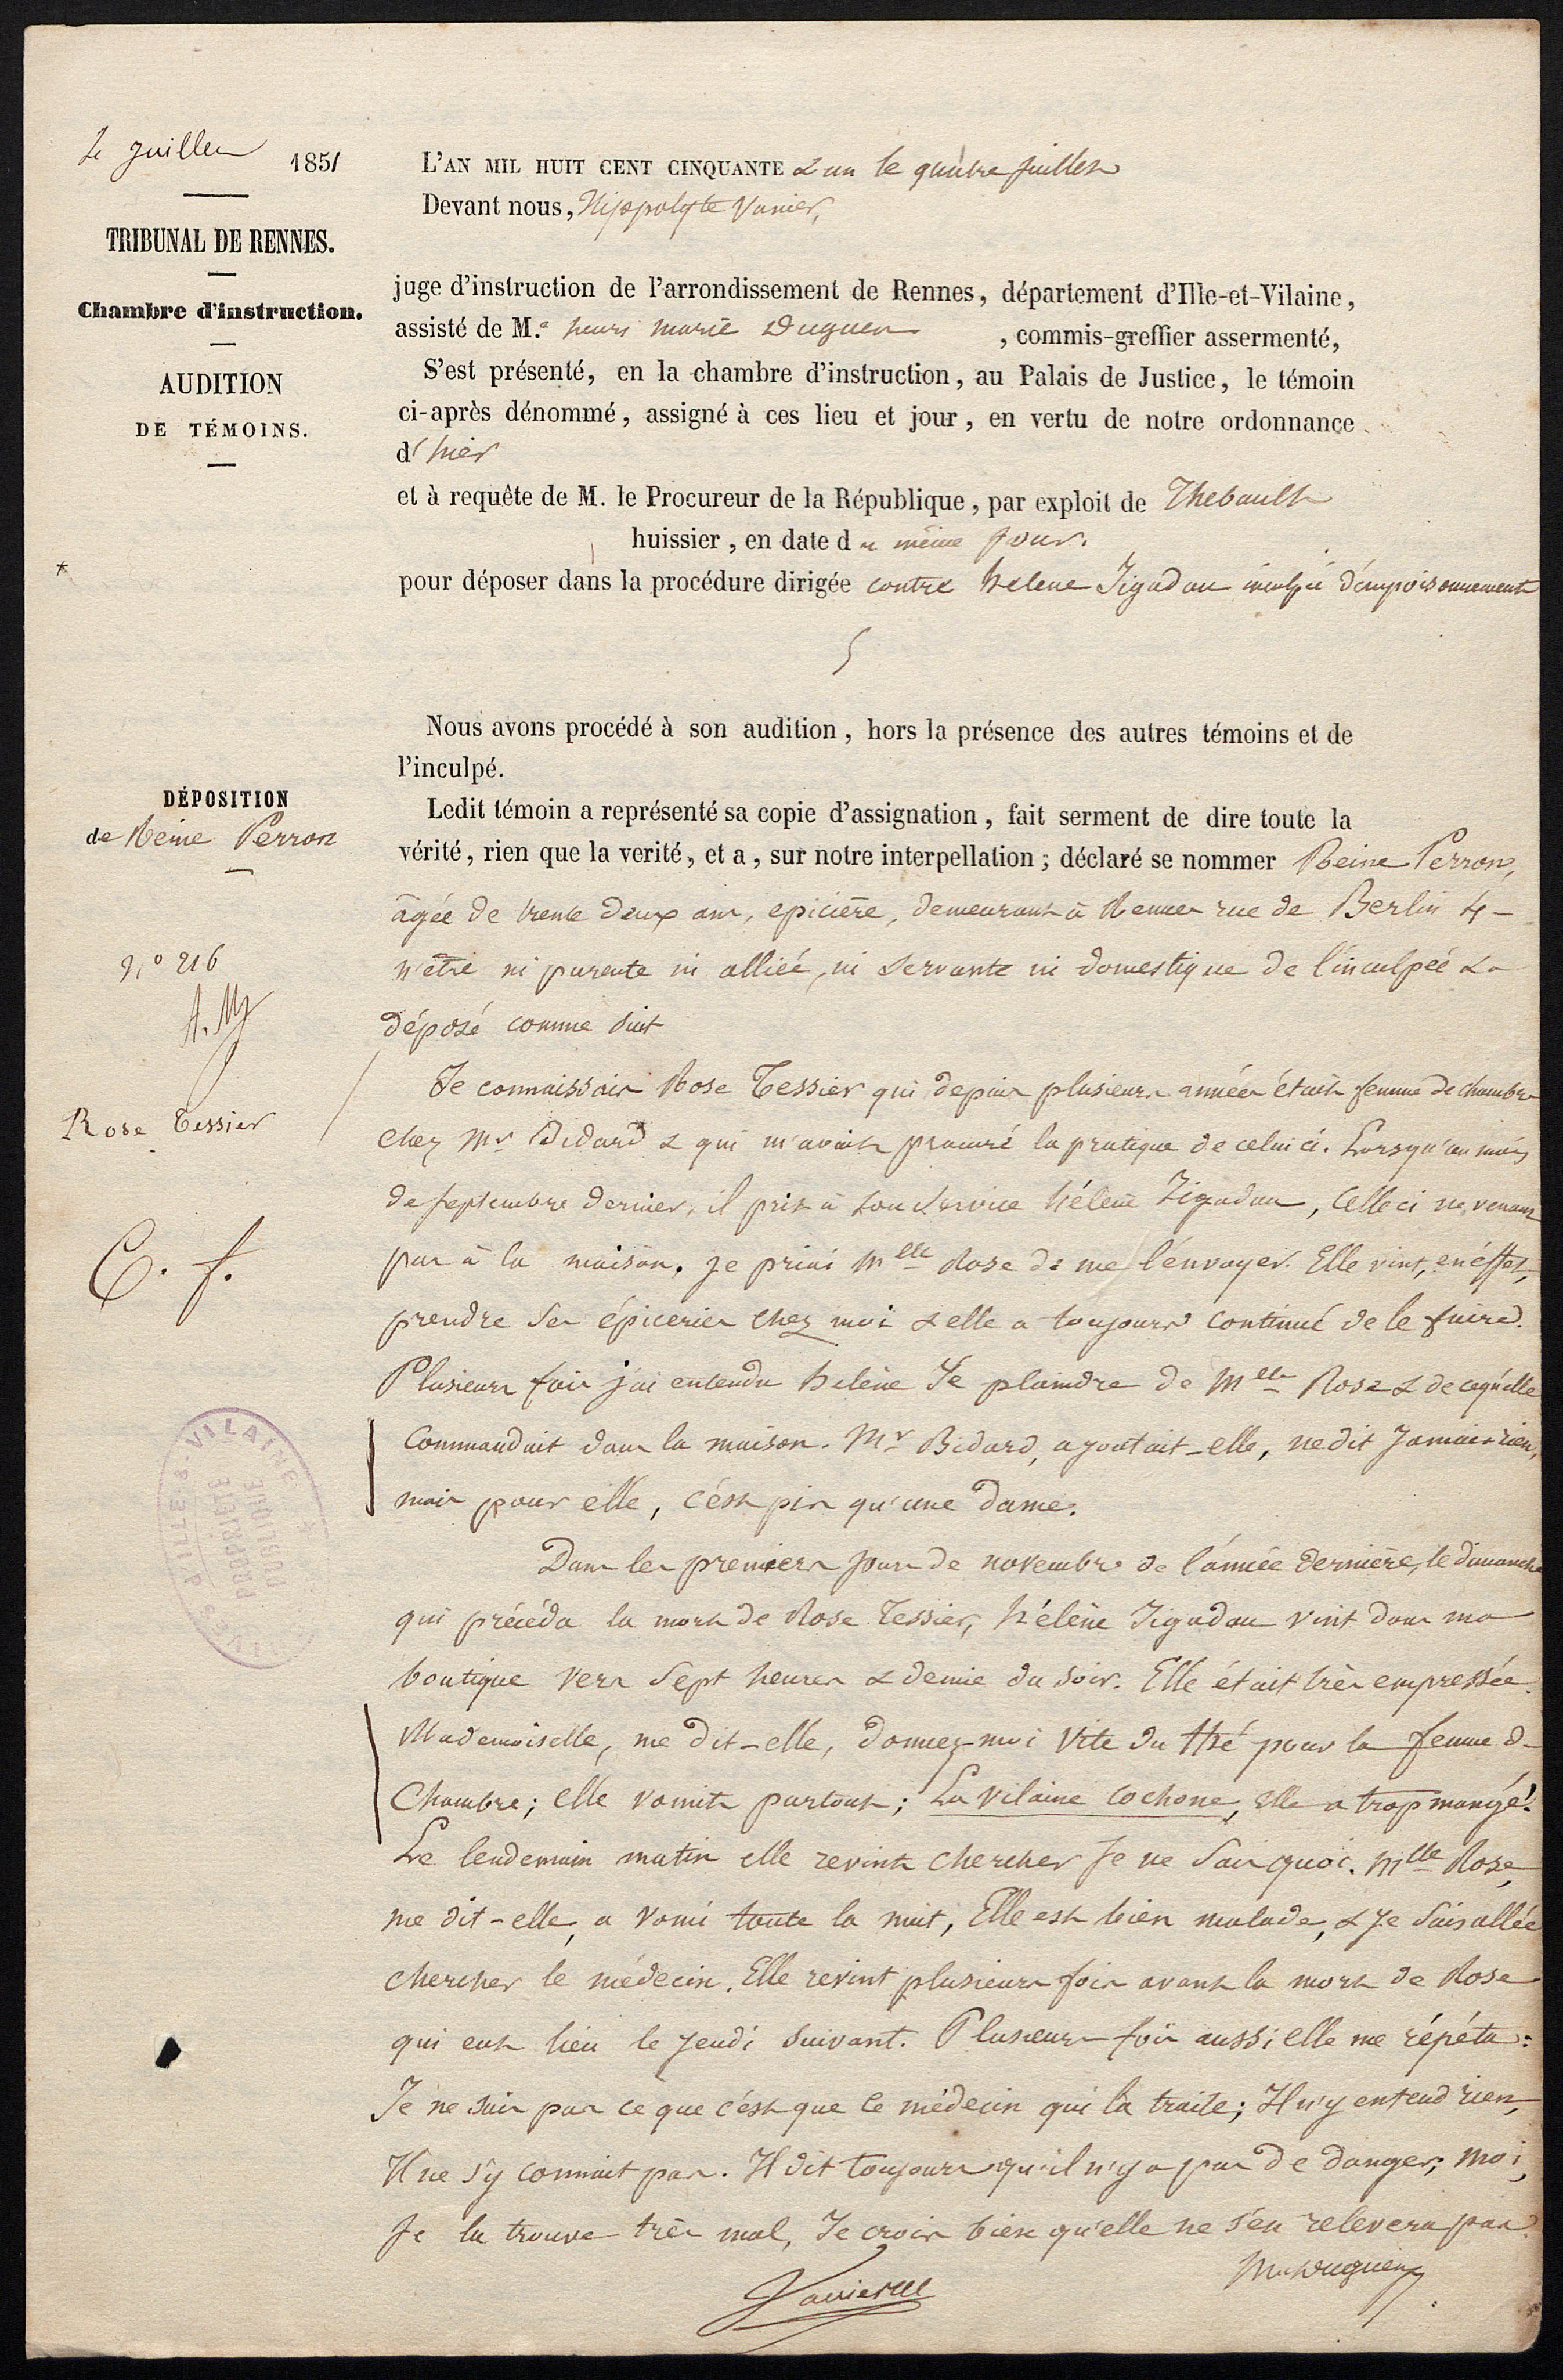 4 juillet 1851
TRIBUNAL DE RENNES.
Chambre d'instruction.
AUDITION
DE TÉMOINS.
L'AN MIL HUIT CENT CINQUANTE & un le quatre juillet
Devant nous, Hippolyte Vanier,
juge d'instruction de l'arrondissement de Rennes, département d'Ille-et-Vilaine,
assisté de M.e henri marie Duguen, commis-greffier assermenté,
S'est présenté, en la chambre d'instruction, au Palais de Justice, le témoin
ci-après dénommé, assigné à ces lieu et jour, en vertu de notre ordonnance
d'hier
et à requête de M. le Procureur de la République, par exploit de Thebault
huissier, en date du même jour.
pour déposer dans la procédure dirigée contre helene Jégadau inculpée d'empoisonnement
Nous avons procédé à son audition, hors la présence des autres témoins et de
l'inculpé.
DÉPOSITION
de Reine Perron
Ledit témoin a représenté sa copie d'assignation, fait serment de dire toute la
vérité, rien que la verité, et a, sur notre interpellation; déclaré se nommer Reine Perron,
âgée de trente deux ans, epicière, demeurant à Rennes rue de Berlin 4 -
n'être ni parente ni alliée, ni servante ni domestique de l'inculpée & a
déposé comme suit
N° 216
Rose Tessier
C. f.
Je connaissais Rose Tessier qui depuis plusieurs années était femme de chambre
chez Mr Bidard & qui m'avait procuré la pratique de celui ci. Lorsqu'au mois
de septembre dernier, il prit à son service hélène Jigadau, celle ci ne venant
pas à la maison, je priai Melle Rose de me l'envoyer. Elle vint, en éffet,
prendre ses épiceries chez moi & elle a toujours continué de le faire.
Plusieurs fois j'ai entendu helène se plaindre de Melle Rose & de ce qu'elle
commandait dans la maison. Mr Bidard, ajoutait-elle, ne dit jamais rien,
mais pour elle, c'ést pis qu'une dame.
Dans les premiers jours de novembre de l'année dernière, le dimanche
qui précéda la mort de Rose Tessier, hélène Jigadau vint dans ma
boutique vers sept heures & demie du soir. Elle était très empressée.
Mademoiselle, me dit-elle, donnez-moi vite du thé pour la femme de
chambre; elle vomit partout; la vilaine cochone, elle a trop mangé.
Le lendemain matin elle revint chercher je ne sais quoi. Melle Rose,
me dit-elle, a vomi toute la nuit, Elle est bien malade, & je suis allée
chercher le médecin. Elle revint plusieurs fois avant la mort de Rose
qui eut lieu le jeudi suivant. Plusieurs fois aussi elle me répéta:
Je ne sais pas ce que c'est que ce médecin qui la traite; Il n'y entend rien,
Il ne s'y connait pas. Il dit toujours qu'il n'y a pas de danger; moi,
je la trouve très mal, Je crois bien qu'elle ne s'en relevera pas.
D'ILLE-&-VILAINE
PROPRIÉTÉ
PUBLIQUE